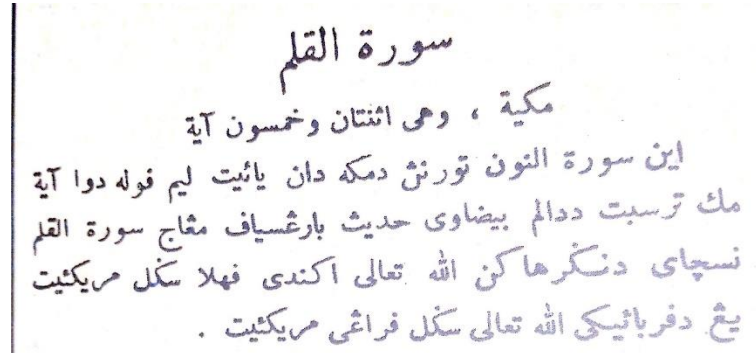 سورة القلم
مكية ، وهى اثنتان وخمسون آية
اين سورة النون تورنڽ دمكه دان يائيت ليم ڤوله دوا آية
مك ترسبت ددالم بيضاوى حديث بارڠسياڤ مڠاج سورة القلم
نسچاى دنڬرهاكن الله تعالى اكندى ڤهلا سڬل مريكئيت
يڠ دڤربائيكى الله تعالى سڬل ڤراڠى مريكئيت .